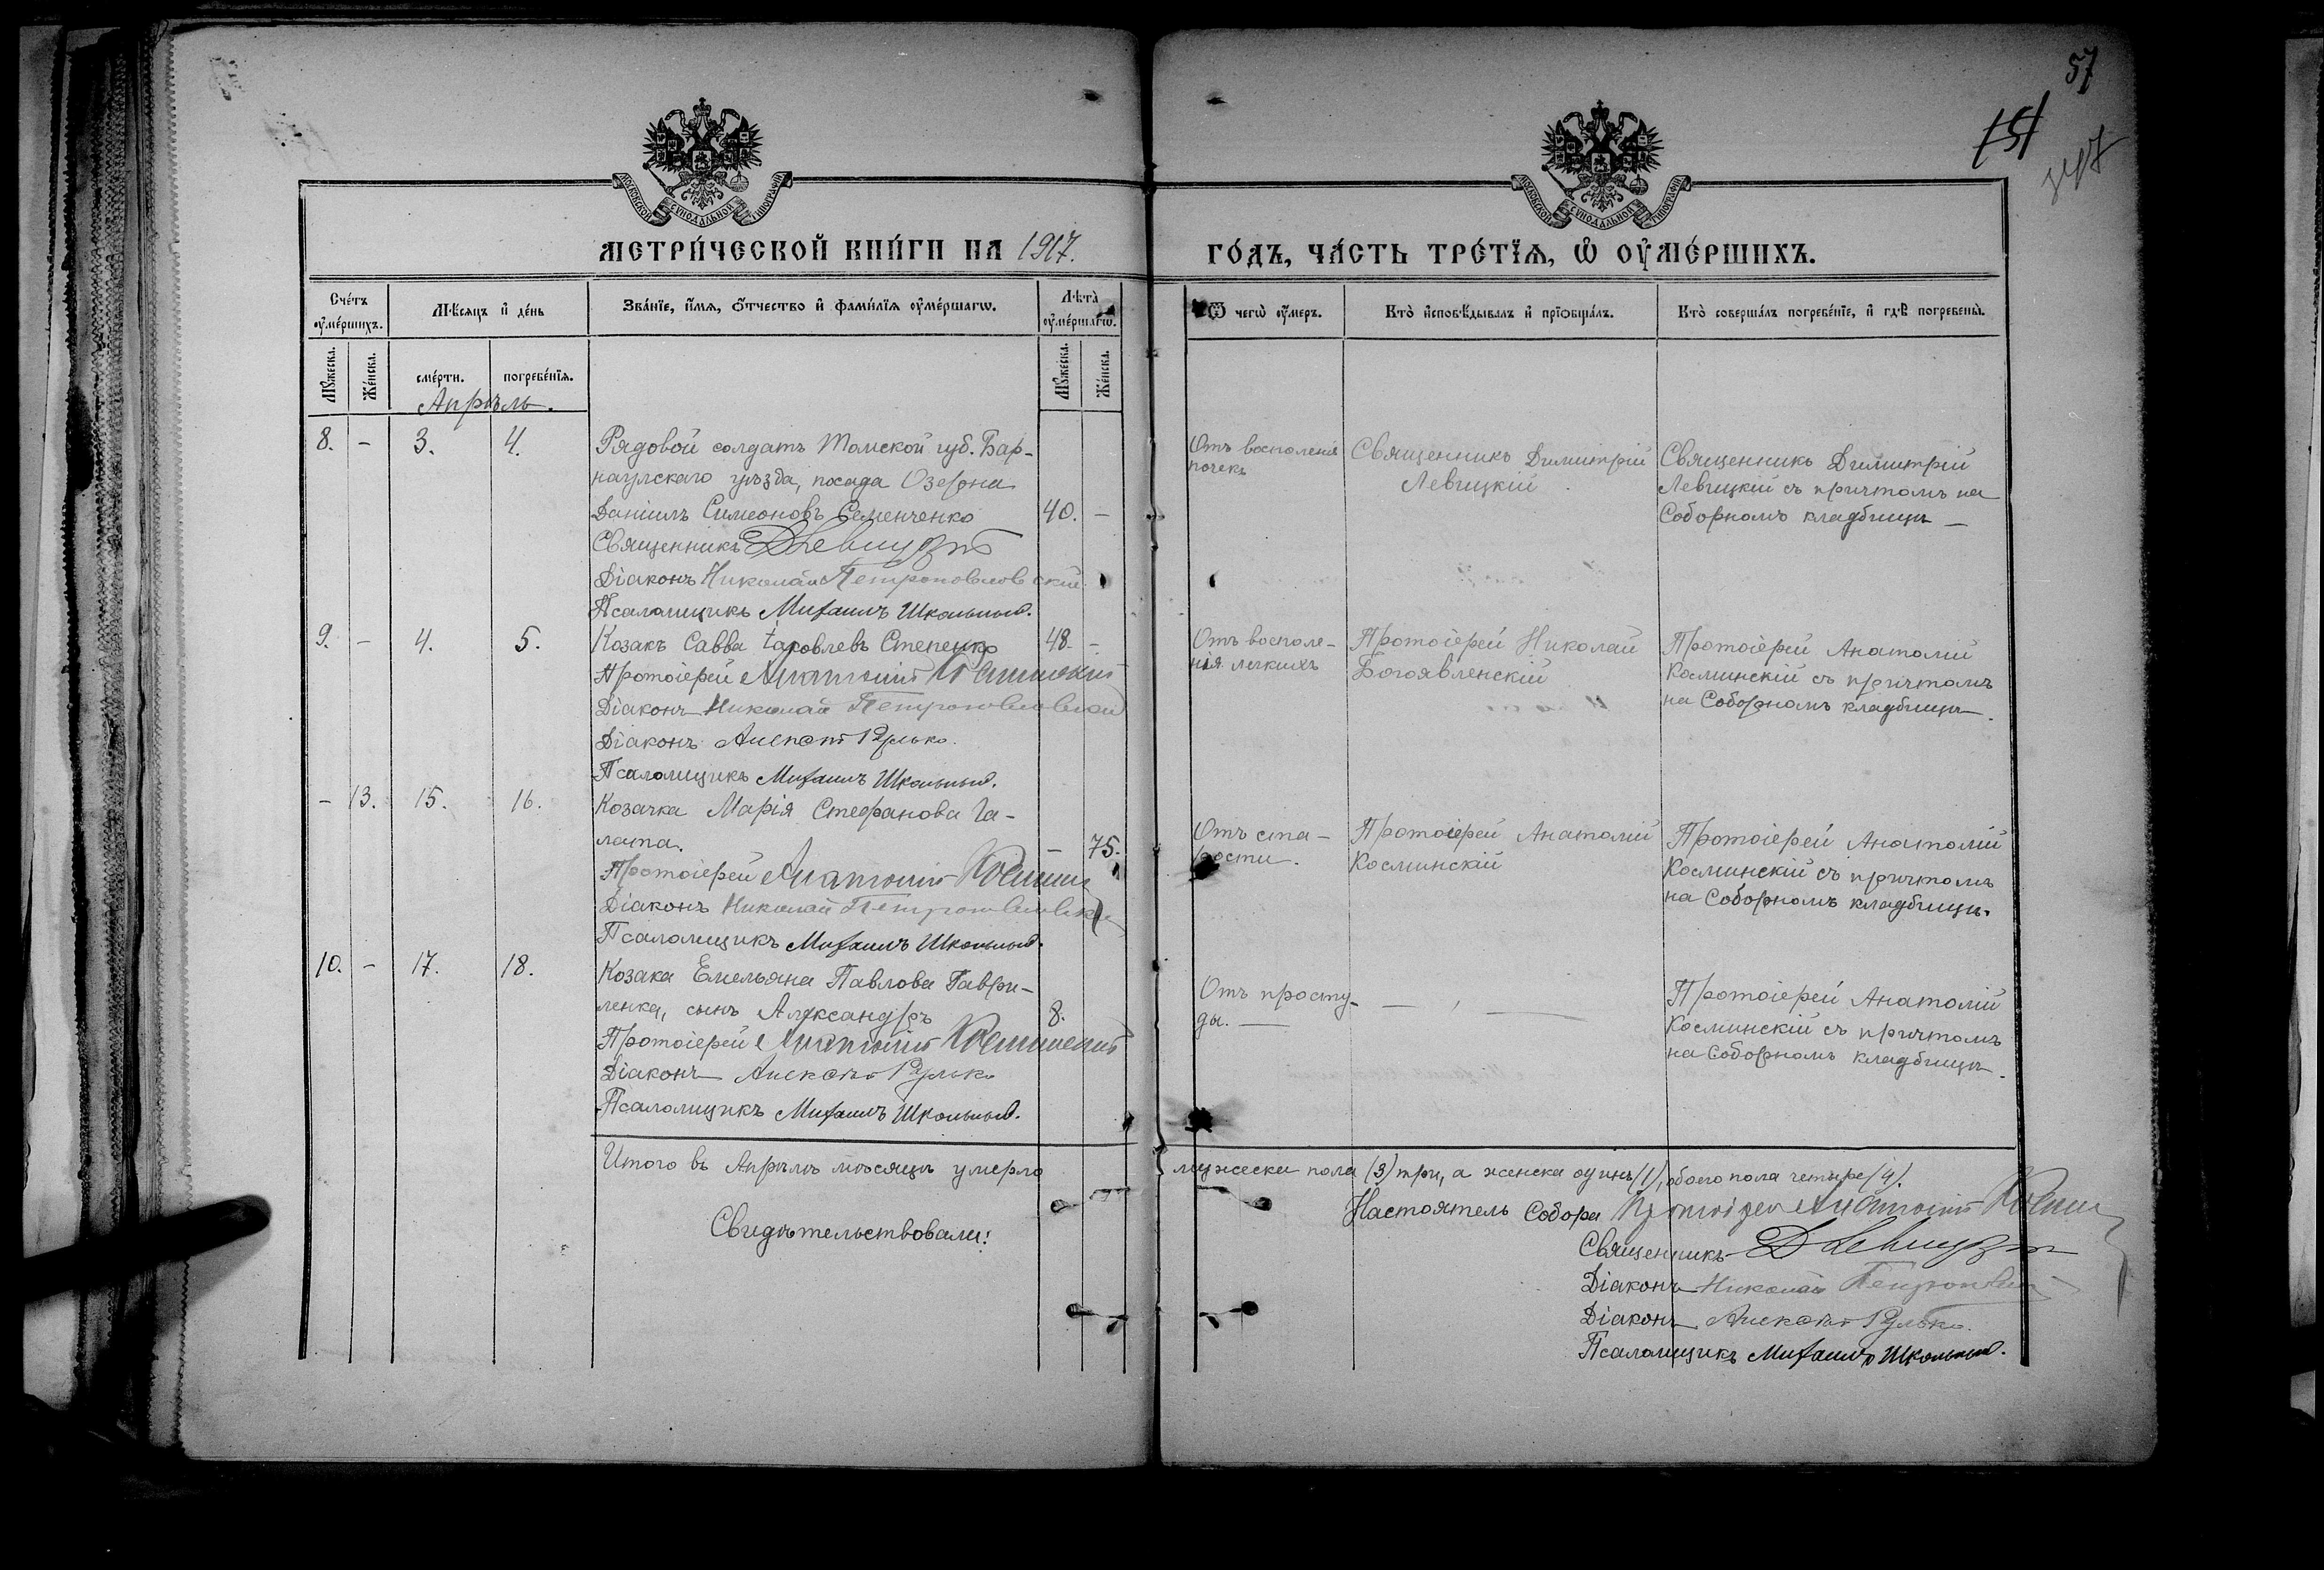 57
151
МОСКОВСКОЙ СѴНОДАЛЬНОЙ ТИПОГРАФІИ
МОСКОВСКОЙ СѴНОДАЛЬНОЙ ТИПОГРАФІИ
МЕТРИ́ЧЕСКОЙ КНИ́ГИ НА 1917.
ГО́ДЪ, ЧА́СТЬ ТРЕ́ТІѦ, Ѡ҆ ОУ҆МЕ́РШИХЪ.
Сче́тъ оу҆ме́ршихъ.
Мѣ́сяцъ и҆ де́нь
Зва́нїе, и҆́мя, ѻ҆́тчество и҆ фами́лїя оу҆ме́ршагѡ.
Лѣта̀ оу҆ме́ршагѡ.
Ѿ чегѡ̀ оу҆́меръ.
Кто̀ и҆сповѣ́дывалъ и҆ прїѡбща́лъ.
Кто̀ соверша́лъ погребе́нїе, и҆ гдѣ̀ погребены̀.
Мꙋ́жеска.
Же́нска.
сме́рти.
погребе́нїя.
Мꙋ́жеска.
Же́нска.
Апрѣль.
8. - 3. 4.
Рядовой солдатъ Томской губ. Бар-
наулскаго уѣзда, посада Озерна
Даніилъ Симеоновъ Семенченко 40. -
Священникъ ДЛевицкій
Діаконъ Николай Петропавловскій
Псаломщикъ Михаилъ Школьный.
Отъ восполенія
почекъ
Священникъ Димитрій
Левицкій.
Священникъ Димитрій
Левицкій съ причтомъ на
Соборномъ кладбищѣ —
9. - 4. 5.
Козакъ Савва Іаковлевъ Степенко 48. -
Протоіерей Анатолій Косминскій
Діаконъ Николай Петропавловскій
Діаконъ Алексѣй Рулько.
Псаломщикъ Михаилъ Школьный.
Отъ восполе-
нія легкихъ
Протоіерей Николай
Богоявленскій
Протоіерей Анатолій
Косминскій съ причтомъ
на Соборномъ кладбищѣ.
- 13. 15. 16.
Козачка Марія Стефанова Га-
лата. - 75.
Протоіерей Анатолій Косминскій
Діаконъ Николай Петропавловскій
Псаломщикъ Михаилъ Школьный.
Отъ ста-
рости.
Протоіерей Анатолій
Косминскій
Протоіерей Анатолій
Косминскій съ причтомъ
на Соборномъ кладбищѣ.
10. - 17. 18.
Козака Емельяна Павлова Гаври-
ленка, сынъ Александръ 8.
Протоіерей Анатолій Косминскій
Діаконъ Алексѣй Рулько
Псаломщикъ Михаилъ Школьный.
Отъ просту-
ды. —
Протоіерей Анатолій
Косминскій съ причтомъ
на Соборномъ кладбищѣ.
Итого въ Апрѣлѣ мѣсяцѣ умерло
мужеска пола (3) три, а женска одинъ (1), обоего пола четыре (4).
Свидѣтельствовали:
Настоятель Собора Протоіерей Анатолій Косминскій
Священникъ ДЛевицкій
Діаконъ Николай Петропавловскій
Діаконъ Алексѣй Рулько.
Псаломщикъ Михаилъ Школьный.